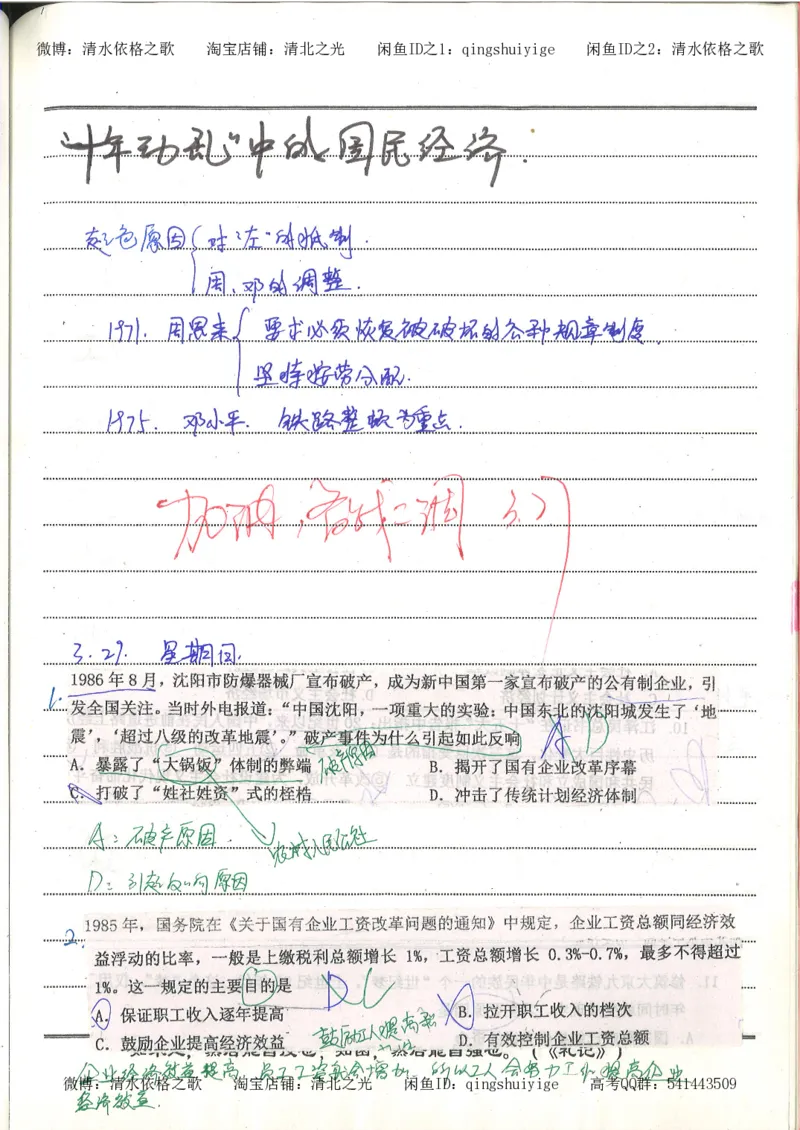 微博：清水依格之歌 淘宝店铺：清北之光 闲鱼ID之1：qingshuiyige 闲鱼ID之2：清水依格之歌
“十年动乱”中的国民经济.
起色原因 对“左”的抵制.
周、邓的调整.
1971. 周恩来 要求必须恢复被破坏的各种规章制度.
坚持按劳分配.
1975. 邓小平. 铁路整顿为重点.
加油，备战二调 3.27
3.29. 星期日.
1. 1986年8月，沈阳市防爆器械厂宣布破产，成为新中国第一家宣布破产的公有制企业，引
发全国关注。当时外电报道：“中国沈阳，一项重大的实验：中国东北的沈阳城发生了‘地
震’，‘超过八级的改革地震’。”破产事件为什么引起如此反响 A D
A．暴露了“大锅饭”体制的弊端 破产原因 B．揭开了国有企业改革序幕
C．打破了“姓社姓资”式的桎梏 D．冲击了传统计划经济体制
A：破产原因. 农村人民公社
D：引起反响原因
2. 1985年，国务院在《关于国有企业工资改革问题的通知》中规定，企业工资总额同经济效
益浮动的比率，一般是上缴税利总额增长 1%，工资总额增长 0.3%-0.7%，最多不得超过
1%。这一规定的主要目的是 D C
A．保证职工收入逐年提高 B．拉开职工收入的档次
C．鼓励企业提高经济效益 鼓励工人提高 D．有效控制企业工资总额
（《礼记》）
企业经济效益提高，员工工资就会增加，所以工人会努力工作提高企业
微博：清水依格之歌 淘宝店铺：清北之光 闲鱼ID：qingshuiyige 高考QQ群：541443509
经济效益.